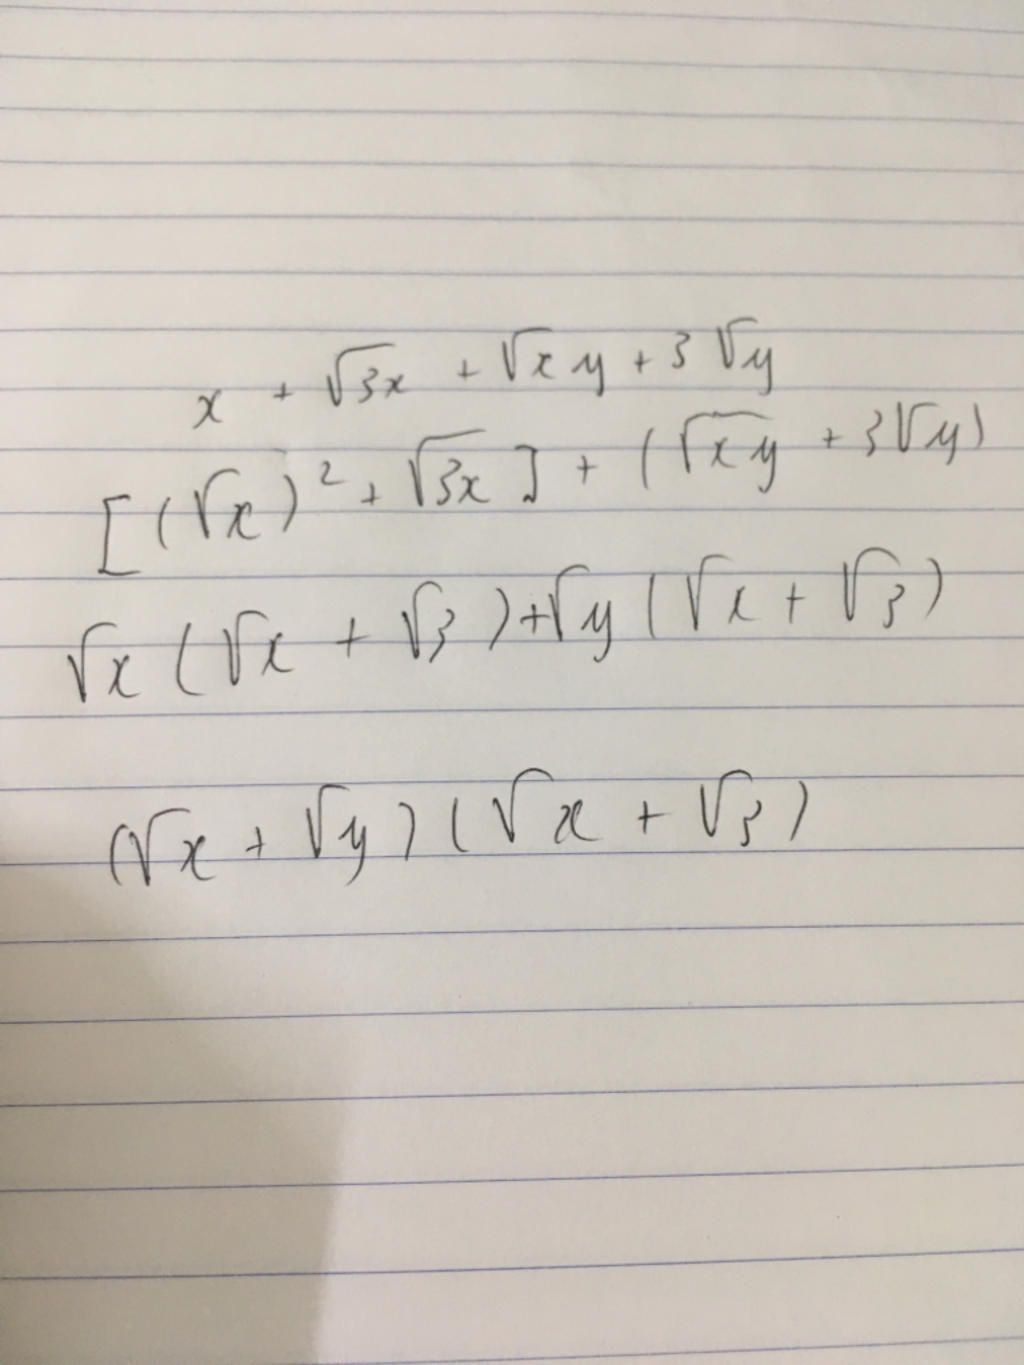 x + √3x + √xy + 3√y
[(√x)² + √3x] + (√xy + 3√y)
√x (√x + √3) + √y (√x + √3)
(√x + √y) (√x + √3)